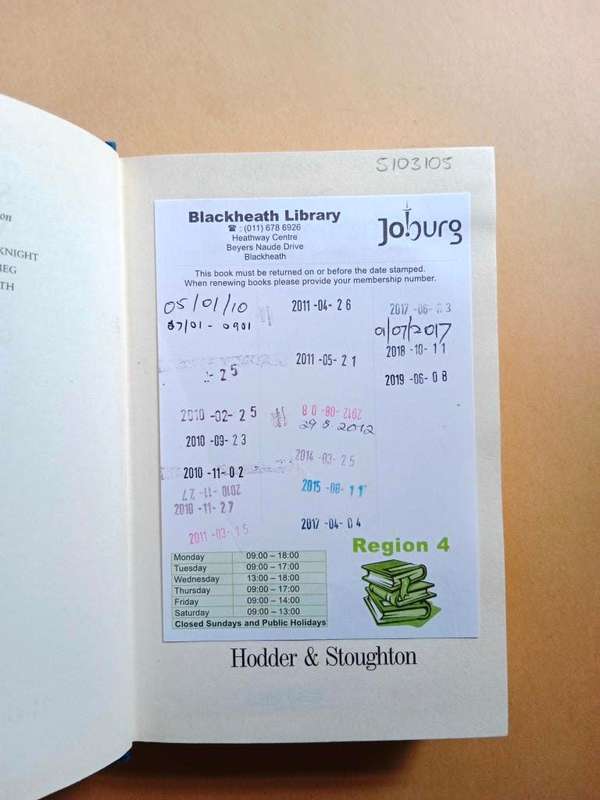 on
KNIGHT
IEG
TH
5103105
Blackheath Library
☎ : (011) 678 6926
Heathway Centre
Beyers Naude Drive
Blackheath
Joburg
This book must be returned on or before the date stamped.
When renewing books please provide your membership number.
05/01/10
07/01-0901
- 25
2010 -02- 25
2010 -09- 23
2010 -11- 02
2010 -11- 27
2010 -11- 27
2011 -03- 15
2011 -04- 26
2011 -05- 21
2012 -08- 08
29 8 2012
2014 -03- 25
2015 -08- 11
2017 -04- 04
2017 -06- 03
01/07/2017
2018 -10- 11
2019 -06- 08
Region 4
Monday 09:00 – 18:00
Tuesday 09:00 – 17:00
Wednesday 13:00 – 18:00
Thursday 09:00 – 17:00
Friday 09:00 – 14:00
Saturday 09:00 – 13:00
Closed Sundays and Public Holidays
Hodder & Stoughton